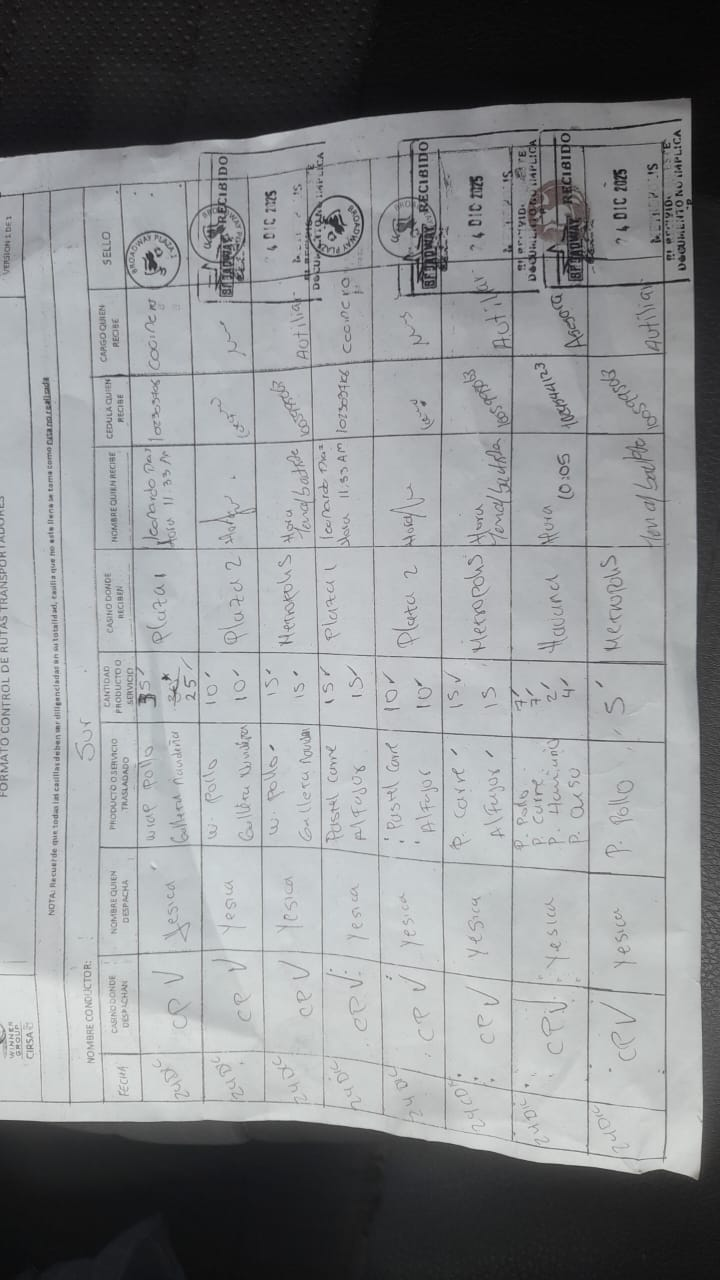 WINNER
GROUP
CIRSA
FORMATO CONTROL DE RUTAS TRANSPORTADORES
VERSION 1 DE 1
NOTA: Recuerde que todas las casillas deben ser diligenciadas en su totalidad, casilla que no este llena se toma como ruta no realizada
NOMBRE CONDUCTOR: Sur
FECHA CASINO DONDE DESPACHAN NOMBRE QUIEN DESPACHA PRODUCTO O SERVICIO TRASLADADO CANTIDAD PRODUCTO O SERVICIO CASINO DONDE RECIBEN NOMBRE QUIEN RECIBE CEDULA QUIEN RECIBE CARGO QUIEN RECIBE SELLO
24 Dic CPV Yesica Wrap Pollo 35 Plaza 1 Leonardo Diaz Cocinero BROADWAY PLAZA 1
Galleta Navideña 30 25 Hora 11:33 Am
24 Dic CPV Yesica W. Pollo 10 Plaza 2
Galleta Navideña 10
BROADWAY RECIBIDO
24 Dic CPV Yesica W. Pollo 15 Metropolis Hora Autiliar
Galleta Navideña 15
24 DIC 2025
EL RECIVIDO DE ESTE
DOCUMENTO NO IMPLICA
24 Dic CPV Yesica Pastel Carne 15 Plaza 1 Leonardo Diaz Cocinero BROADWAY PLAZA
Alfajor 15 Hora 11:33 AM
24 Dic CPV Yesica Pastel Carne 10 Plaza 2
Alfajor 10
BROADWAY RECIBIDO
24 Dic CPV Yesica P. Carne 15 Metropolis Hora Autiliar
Alfajor 15
24 DIC 2025
EL RECIVIDO DE ESTE
DOCUMENTO NO IMPLICA
24 Dic CPV Yesica P. Pollo 7 Havana Hora 10:05 Asesora
P. Carne 7
P. Hawaiano 2
P. Queso 4
BROADWAY RECIBIDO
24 Dic CPV Yesica P. Pollo 5 Metropolis Autiliar
24 DIC 2025
EL RECIVIDO DE ESTE
DOCUMENTO NO IMPLICA